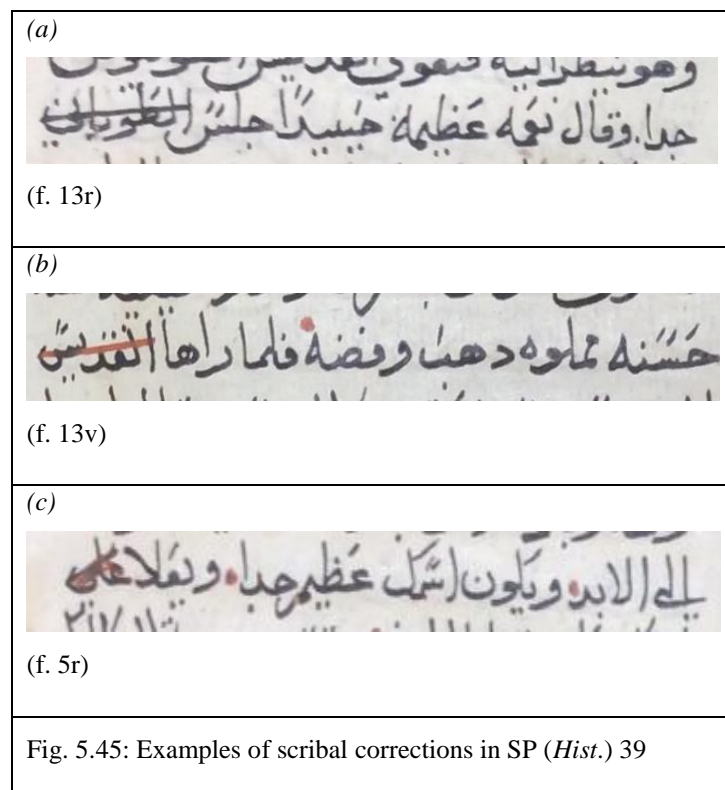 (a)
وهو ينظر اليه فيقول القديس
جدا. وقال نعمه عظيمه حينيدًا جلسَ الطوباني
(f. 13r)
(b)
حَسَنه مملوه دهب وفضه فلما راها القديسَ
(f. 13v)
(c)
إلى الابد. ويكون اسمك عظيم جدا. ويعلا على
(f. 5r)
Fig. 5.45: Examples of scribal corrections in SP (Hist.) 39